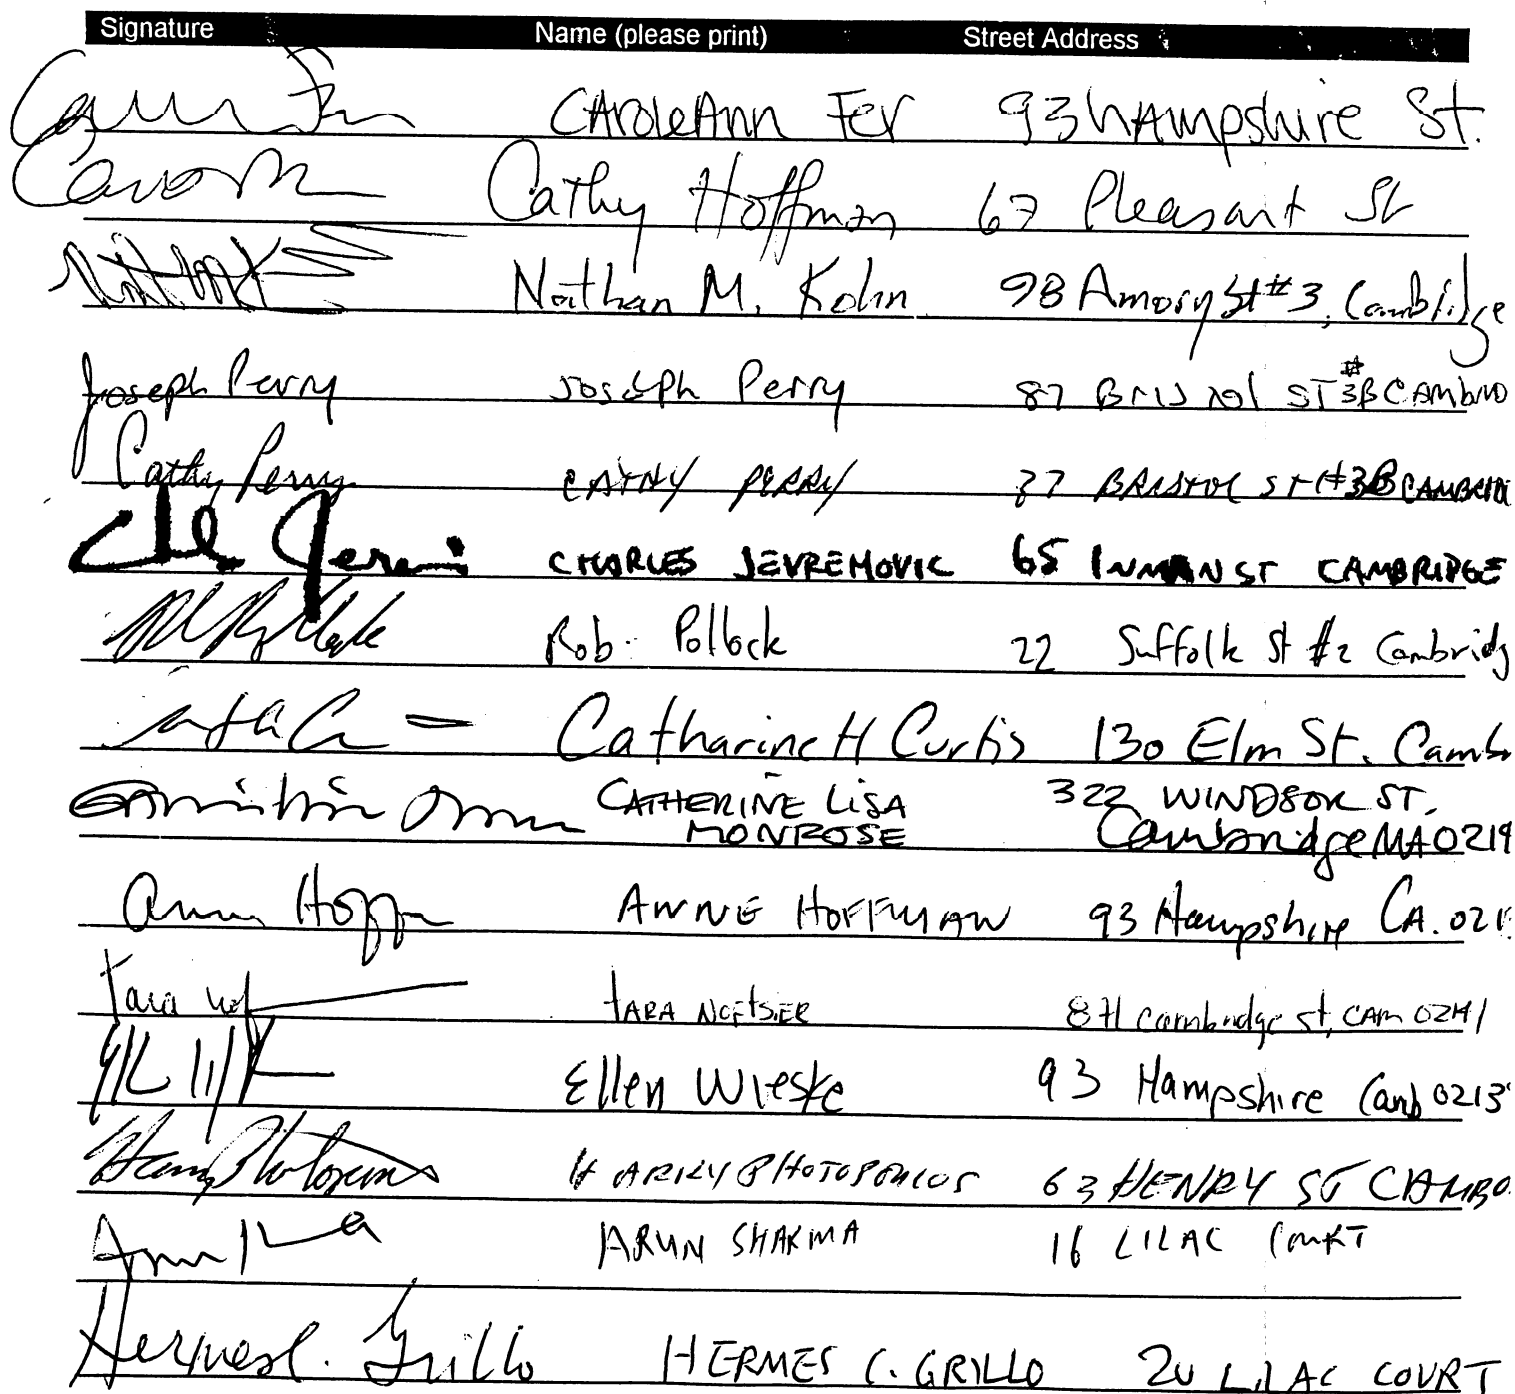 Signature Name (please print) Street Address
CAroleAnn Fer 93 hAmpshire St.
Cathy Hoffman 67 Pleasant St
Nathan M. Kohn 98 Amory St #3, Cambridge
Joseph Perry Joseph Perry 87 Bristol ST #3B CAMBRID
Cathy Perry CATHY PERRY 87 BRISTOL ST #3B CAMBRID
CHARLES JEVREMOVIC 65 INMAN ST CAMBRIDGE
Rob Pollock 22 Suffolk St #2 Cambridg
Catharine H Curtis 130 Elm St. Camb
CATHERINE LiSA 322 WINDSOR ST.
MONROSE Cambridge MA 0214
Anne Hoffman ANNE HOFFMAN 93 Hampshire CA. 021
tara tARA 871 Cambridge st, CAM 02141
Ellen Wieske 93 Hampshire Camb 0213
Harry Photopoulos HARRY PHOTOPOULOS 63 HENRY ST CAMBR
ARUN SHARMA 16 LILAC COURT
Hermes C. Grillo HERMES C. GRILLO 20 LILAC COURT